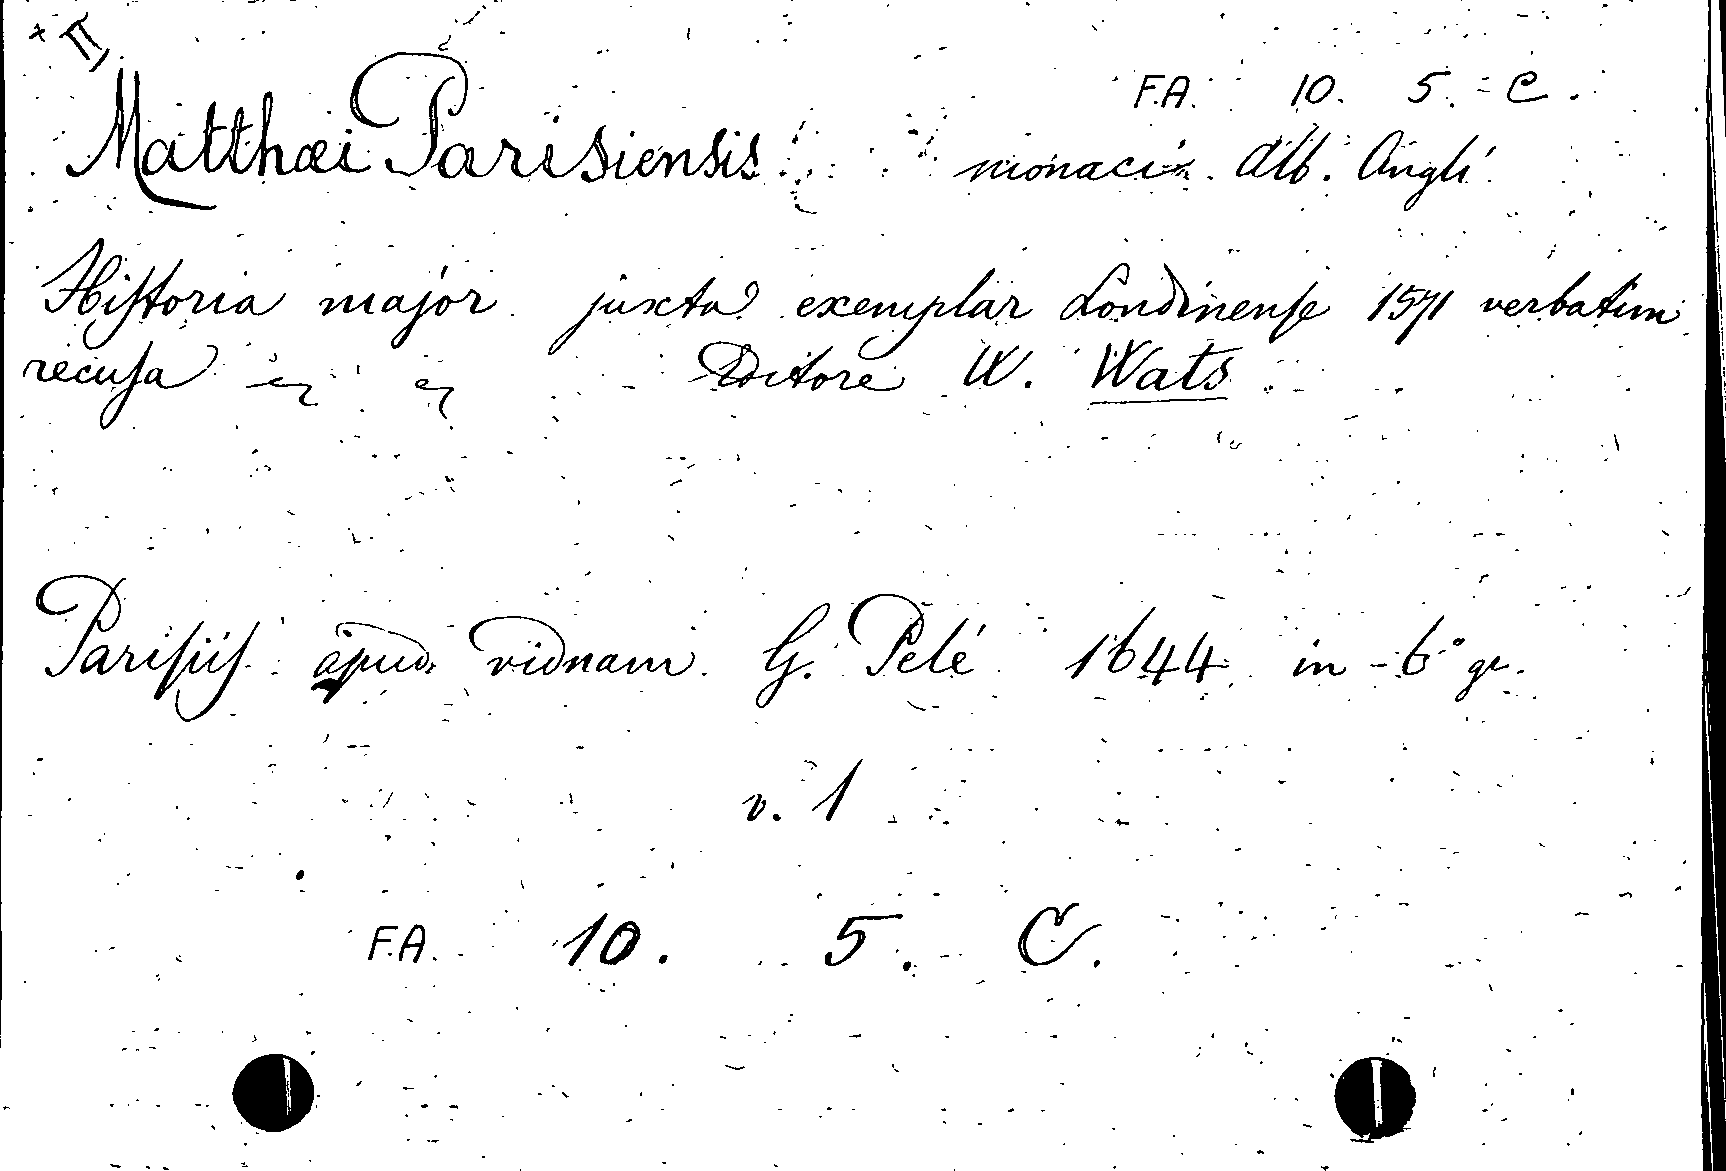 + II
F.A. 10. 5. C.
Matthæi Parisiensis monaci Alb. Angli
Historia major juxta exemplar Londinense 1571 verbatim
recusa Editore W. Wats
Parisiis apud viduam G. Pelé 1644 in-6° gr.
v. 1
F.A. 10. 5. C.